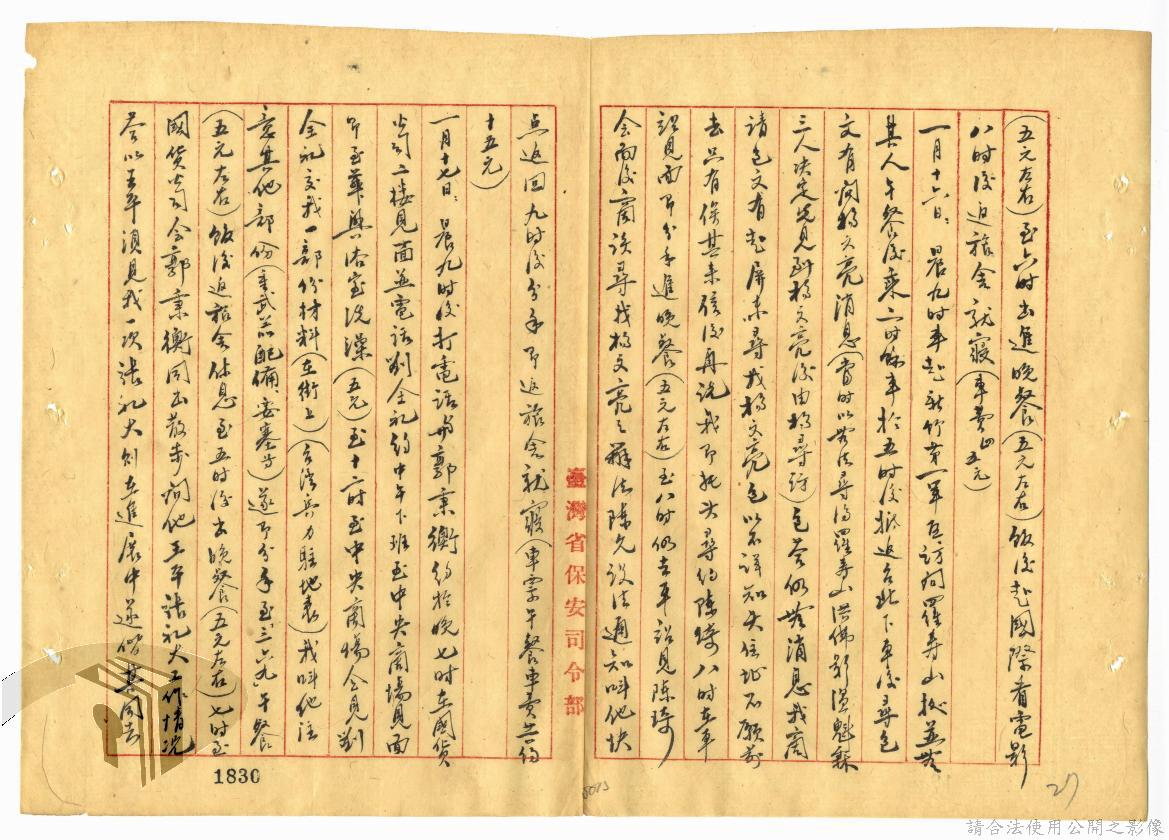 (五元左右)至六时出進晚餐(五元左右)飯後赴國際看電影
八时後返旅舍就寢(車費山五元)
一月十六日:晨九时車赴新竹第一軍區訪问羅壽山據並無
其人午餐後乘二时餘車於五时後抵返台北下車後尋包
文有询楊文亮消息(當时以無法尋得羅壽山洪佛彩温魁森
三人决定先見到楊文亮後由楊尋訪)包答仍無消息我商
請包文有赴屏東尋找楊文亮包以不詳知夫住址不願前
去只有俟其来信後再説我即托夫尋约陳綺八时在車
站見面即分手進晚餐(五元左右)至八时仍去車站見陳琦
会面後商談尋找楊文亮之辦法陳允設法通知叫他快
点返回九时後分手即返旅舍就寢(車票午餐車費共约
十五元)
一月十七日:晨九时後打電話与郭秉衡约於晚七时在國貨
公司二楼見面並電話劉全礼约中午下班至中央商場見面
即至華興浴室洗澡(五元)至十二时至中央商場会見劉
全礼交我一部份材料(在街上)(台湾兵力駐地表)我叫他注
意其他部份(重武器配備要塞等)遂即分手至三六九午餐
(五元左右)飯後返旅舍休息至五时後出晚餐(五元左右)七时至
國貨公司会郭秉衡同出散步询他王平張礼大工作情况
答以王平須見我一次張礼大则在進展中遂偕其同去
臺灣省保安司令部
1830
5073
27
請合法使用公開之影像